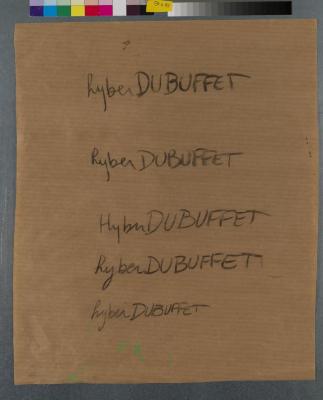 hyberDUBUFFET
hyberDUBUFFET
HyberDUBUFFET
hyberDUBUFFET
hyberDUBUFFET